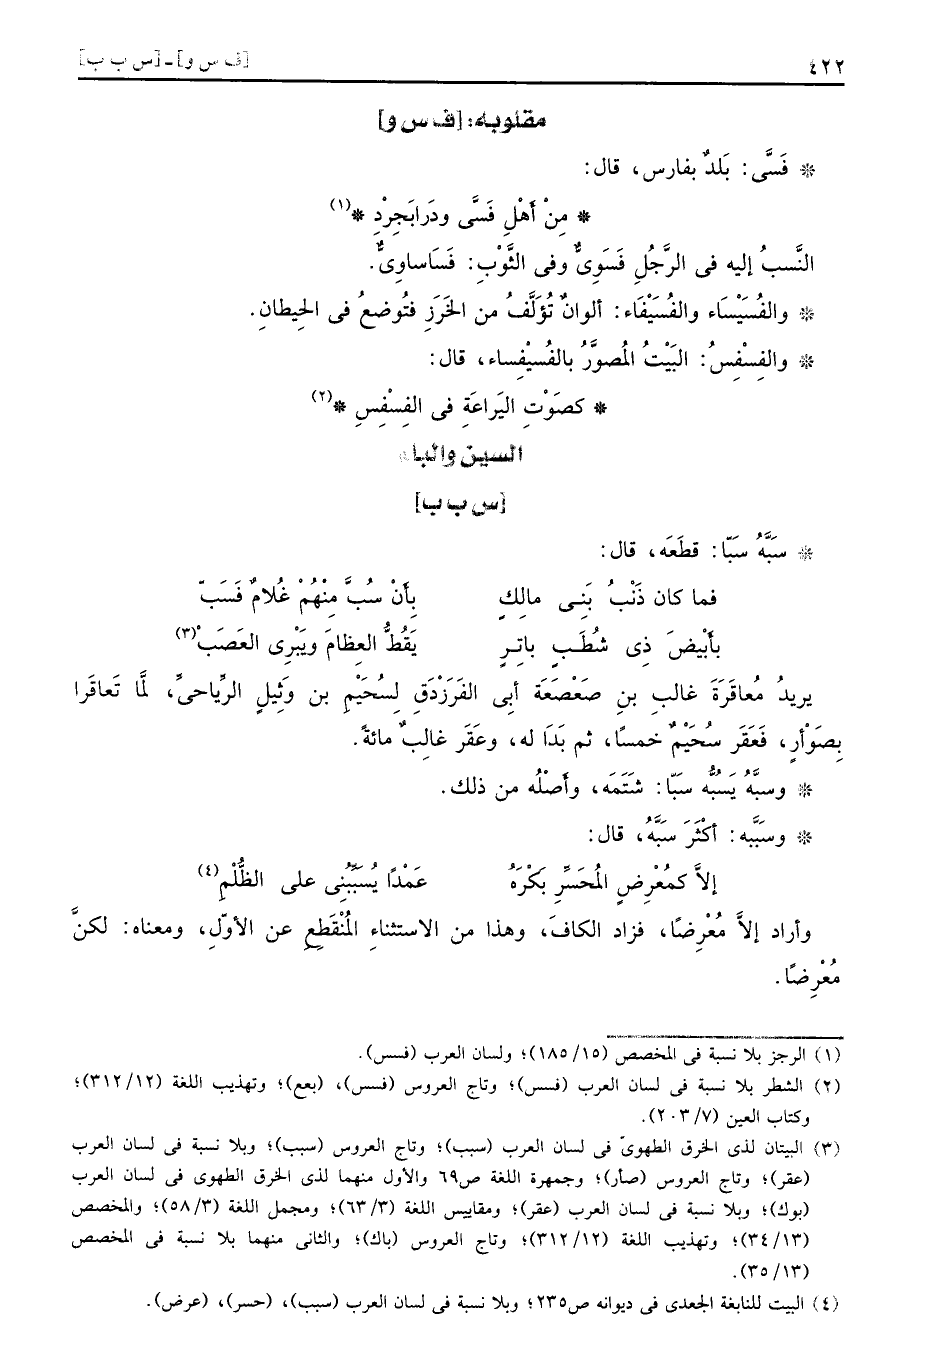 ٤٢٢ [ف س و] ـ [س ب ب]
مقلوبه: [ف س و]
* فَسَّى: بَلدٌ بفارس، قال:
* مِنْ أَهْلِ فَسَّى ودَرابَجِرْدِ *(١)
النَّسبُ إليه فى الرَّجُلِ فَسَوِىٌّ وفى الثَّوْبِ: فَسَاساوِىٌّ.
* والفُسَيْسَاء والفُسَيْفَاء: ألوانٌ تُؤَلَّفُ من الخَرَزِ فتُوضعُ فى الحِيطانِ.
* والفِسْفِسُ: البَيْتُ المُصوَّرُ بالفُسيْفِساء، قال:
* كصَوْتِ اليَراعَةِ فى الفِسْفِسِ *(٢)
السين والباء
[س ب ب]
* سَبَّهُ سَبّا: قطَعَه، قال:
فما كان ذَنْبُ بَنِى مالِكٍ بِأَنْ سُبَّ مِنْهُمْ غُلامٌ فَسَبّ
بأَبْيضَ ذِى شُطَبٍ باتِرٍ يَقُطُّ العِظامَ ويَبْرِى العَصَبْ(٣)
يريدُ مُعاقَرَةَ غالبِ بنِ صَعْصَعَة أبى الفَرَزْدَقِ لسُحَيْمِ بن وَثِيلٍ الرِّياحىِّ، لمَّا تَعاقَرا
بِصَوْأرٍ، فَعَقَر سُحَيْمٌ خمسًا، ثم بَدَا له، وعَقَر غالبٌ مائةً.
* وسبَّهُ يَسُبُّه سَبّا: شَتَمَه، وأَصْلُه من ذلك.
* وسَبَّبه: أكثَرَ سَبَّهُ، قال:
إلاَّ كمُعْرِضٍ المُحَسِّرِ بَكْرَهُ عَمْدًا يُسَبِّبُنِى على الظُّلْمِ(٤)
وأراد إلاَّ مُعْرِضًا، فزاد الكافَ، وهذا من الاستثناءِ المُنْقَطِعِ عن الأوّلِ، ومعناه: لكنَّ
مُعْرِضًا.
(١) الرجز بلا نسبة فى المخصص (١٥/ ١٨٥)؛ ولسان العرب (فسس).
(٢) الشطر بلا نسبة فى لسان العرب (فسس)؛ وتاج العروس (فسس)، (بعع)؛ وتهذيب اللغة (١٢/ ٣١٢)؛
وكتاب العين (٧/ ٢٠٣).
(٣) البيتان لذى الخرق الطهوىّ فى لسان العرب (سبب)؛ وتاج العروس (سبب)؛ وبلا نسبة فى لسان العرب
(عقر)؛ وتاج العروس (صأر)؛ وجمهرة اللغة ص٦٩ والأول منهما لذى الخرق الطهوى فى لسان العرب
(بوك)؛ وبلا نسبة فى لسان العرب (عقر)؛ ومقاييس اللغة (٣/ ٦٣)؛ ومجمل اللغة (٣/ ٥٨)؛ والمخصص
(١٣/ ٣٤)؛ وتهذيب اللغة (١٢/ ٣١٢)؛ وتاج العروس (باك)؛ والثانى منهما بلا نسبة فى المخصص
(١٣/ ٣٥).
(٤) البيت للنابغة الجعدى فى ديوانه ص٢٣٥؛ وبلا نسبة فى لسان العرب (سبب)، (حسر)، (عرض).